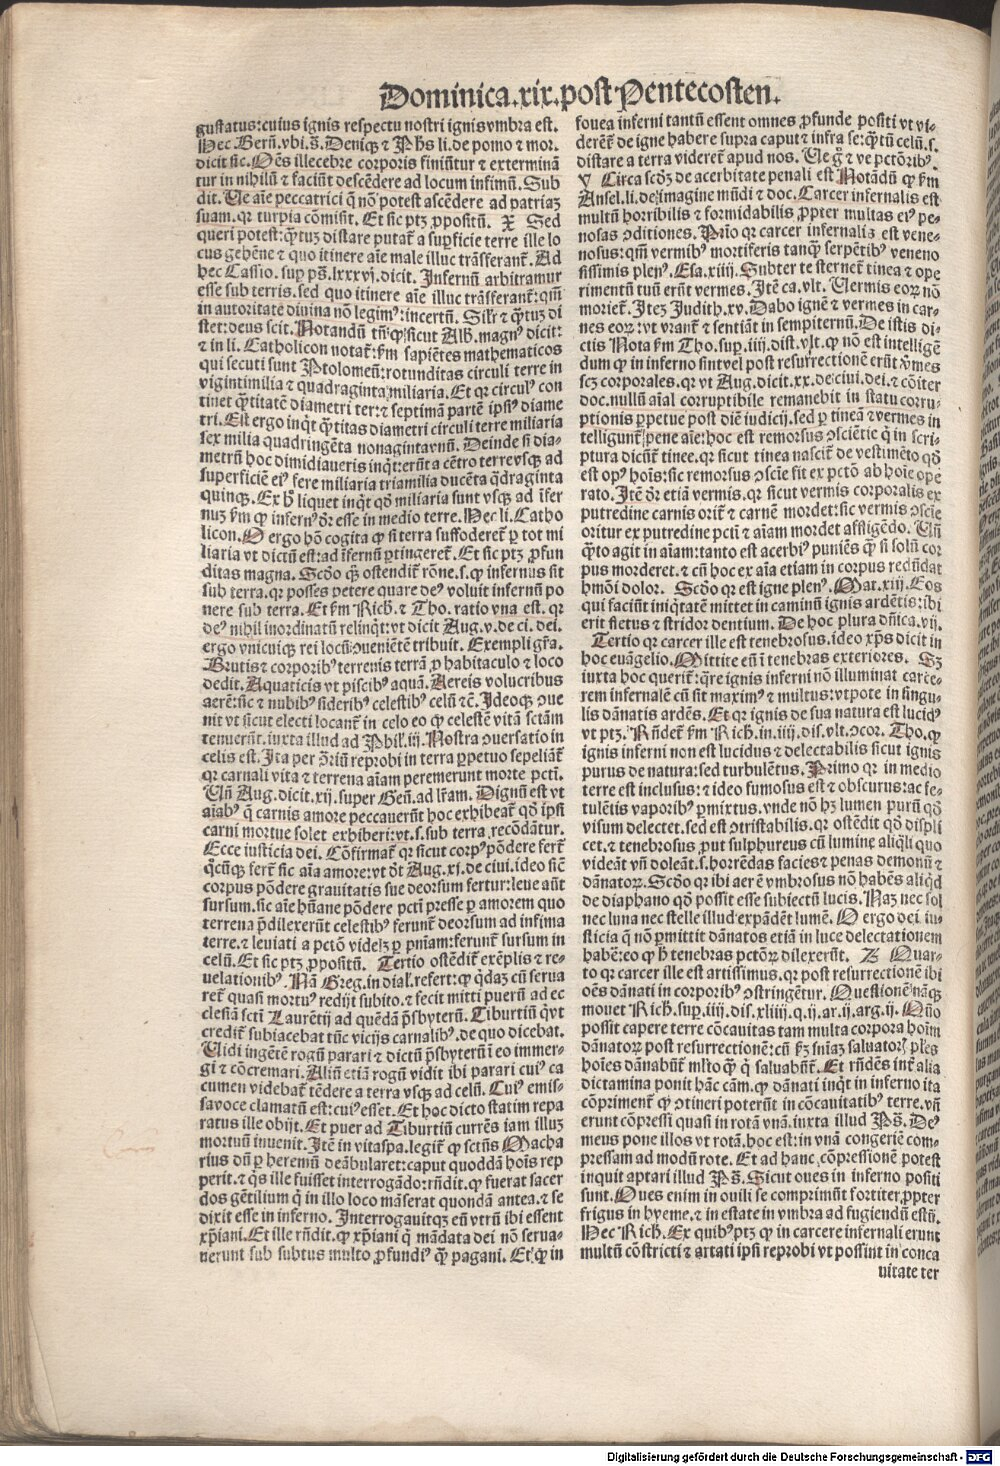 Dominica.xix.post Pentecosten.
gustatus:cuius ignis respectu nostri ignis vmbra est.
Hec Berñ.vbi.s̃. Deniqꝫ ⁊ Pħs li.de pomo ⁊ mor.
dicit sic. Oẽs illecebre corporis finiũtur ⁊ exterminã
tur in nihilũ ⁊ faciũt descẽdere ad locum infimũ. Sub
dit. Ue aĩe peccatrici q̃ nõ potest ascẽdere ad patriaꝫ
suam.qꝛ turpia cõmisit. Et sic ptꝫ ꝓpositũ. X Sed
queri potest:q̃ꝫtuꝫ distare putat᷑ a supficie terre ille lo
cus gehẽne ⁊ quo itinere aĩe male illuc trãsferant᷑. Ad
hec Cassio.sup ps̃.lxxxvj.dicit. Infernũ arbitramur
esse sub terris.sed quo itinere aĩe illuc trãsferant᷑:qm̃
in autoritate diuina nõ legimꝰ:incertũ. Sil̃r ⁊ q̃ꝫtuꝫ di
stet:deus scit. Notandũ tñ ꝙ sicut Alb.magnꝰ dicit:
⁊ in li. Catholicon notat᷑:ẜm sapiẽtes mathematicos
qui secuti sunt Ptolomeũ:rotunditas circuli terre in
vigintimilia ⁊ quadraginta miliaria. Et qꝛ circulꝰ con
tinet q̃ꝫtitatẽ diametri ter:⁊ septimã partẽ ipsiꝰ diame
tri. Est ergo inq̃t q̃ꝫtitas diametri circuli terre miliaria
sex milia quadringẽta nonagintavnũ. Deinde si dia-
metrũ hoc dimidiaueris inq̃t:erũt a cẽtro terre vsqꝫ ad
superficiẽ eiꝰ fere miliaria triamilia ducẽta q̃draginta
quinqꝫ. Ex ħ liquet inq̃t qõ miliaria sunt vsqꝫ ad ĩfer
nuꝫ ẜm ꝙ infernꝰ dr̃ esse in medio terre. Hec li. Catho
licon. O ergo hõ cogita ꝙ si terra suffoderet᷑ p tot mi
liaria vt dictũ est:ad ĩfernũ ptingeret᷑. Et sic ptꝫ ꝓfun
ditas magna. Scõo qꝫ ostendit᷑ rõne.s.ꝙ infernus sit
sub terra.qꝛ posses petere quare deꝰ voluit infernũ po
nere sub terra. Et ẜm Rich. ⁊ Tho. ratio vna est. qꝛ
deꝰ nihil inordinatũ relinq̃t:vt dicit Aug.v.de ci.dei.
ergo vnicuiqꝫ rei locũ ꝯueniẽtẽ tribuit. Exempli gr̃a.
Brutis ⁊ corporibꝰ terrenis terrã ꝓ habitaculo ⁊ loco
dedit. Aquaticis vt piscibꝰ aquã. Aereis volucribus
aerẽ:sic ⁊ nubibꝰ sideribꝰ celestibꝰ celũ ⁊c̃. Ideoqꝫ ꝯue
nit vt sicut electi locant᷑ in celo eo ꝙ celestẽ vitã sctãm
tenuerũt.iuxta illud ad Phil.iij. Nostra ꝯuersatio in
celis est. Ita per ꝯ̃riũ reprobi in terra ppetuo sepeliãt᷑
qꝛ carnali vita ⁊ terrena aĩam peremerunt morte pcti.
Uñ Aug.dicit.xij.super Geñ.ad lr̃am. Dignũ est vt
aĩabꝰ q̃ carnis amore peccauerũt hoc exhibeat᷑ qõ ipsi
carni mortue solet exhiberi:vt.s.sub terra recõdãtur.
Ecce iusticia dei. Cõfirmat᷑ qꝛ sicut corpꝰ põdere fert᷑
q̃cũqꝫ fert᷑ sic aĩa amore:vt dt̃ Aug.xj.de ciui.ideo sic̃
corpus põdere grauitatis sue deorsum fertur:leue aũt
sursum.sic aĩe hũane põdere pcti presse p amorem quo
terrena p̃dilexerũt celestibꝰ ferunt᷑ deorsum ad infima
terre.⁊ leuiati a pctõ videlꝫ p pñiam:ferunt᷑ sursum in
celũ. Et sic ptꝫ ꝓpositũ. Tertio ostẽdit᷑ exẽplis ⁊ re-
uelationibꝰ. Nã Greg.in dial.refert:ꝙ q̃daꝫ cũ serua
ret᷑ quasi mortuꝰ redijt subito.⁊ fecit mitti puerũ ad ec
clesiã scti Laurẽtij ad quẽdã p̃sbyterũ. Tiburtiũ qvt
credit᷑ subiacebat tũc vicijs carnalibꝰ.de quo dicebat.
Uidi ingẽtẽ rogũ parari ⁊ dictũ p̃sbyterũ ĩ eo immer-
gi ⁊ cõcremari. Aliũ etiã rogũ vidit ibi parari cuiꝰ ca
cumen videbat᷑ tẽdere a terra vsqꝫ ad celũ. Cuiꝰ emis-
sa voce clamatũ est:cuiꝰ esset. Et hoc dicto statim repa
ratus ille obijt. Et puer ad Tiburtiũ currẽs iam illuꝫ
mortuũ inuenit. Itẽ in vitaspa.legit᷑ ꝙ sctũs Macha
rius dũ p heremũ deãbularet:caput quoddã hoĩs rep
perit.⁊ q̃s ille fuisset interrogãdo:rñdit.ꝙ fuerat sacer
dos gẽtilium q̃ in illo loco mãserat quondã antea.⁊ se
dixit esse in inferno. Interrogauitqꝫ eũ vtrũ ibi essent
xp̃iani. Et ille rñdit.ꝙ xp̃iani q̃ mãdata dei nõ serua-
uerunt sub subtus multo ꝓfundiꝰ q̃ꝫ pagani. Et ꝙ in
fouea inferni tantũ essent omnes ꝓfunde positi vt vi-
derẽt᷑ de igne habere supra caput ⁊ infra se:q̃ꝫtũ celũ.s.
distare a terra videret᷑ apud nos. Ue g̃ ⁊ ve pctõribꝰ.
Y Circa scõꝫ de acerbitate penali est Notãdũ ꝙ ẜm
Ansel.li.de imagine mũdi ⁊ doc. Carcer infernalis est
multũ horribilis ⁊ formidabilis ꝓpter multas eiꝰ pe-
nosas ꝯditiones. Prĩo qꝛ carcer infernalis est vene-
nosus:qm̃ vermibꝰ mortiferis tanqꝫ serpẽtibꝰ veneno
sissimis plenꝰ. Esa.xiiij. Subter te sternet᷑ tinea ⁊ ope
rimentũ tuũ erũt vermes. Itẽ ca.vlt. Uermis eoꝝ nõ
moriet᷑. Iteꝫ Judith.xv. Dabo ignẽ ⁊ vermes in car-
nes eoꝝ:vt vrant᷑ ⁊ sentiãt in sempiternũ. De istis di-
ctis Nota ẜm Tho.sup.iiij.dist.vlt.ꝙ nõ est intelligẽ
dum ꝙ in inferno sint vel post resurrectionẽ erũt ṽmes
scꝫ corporales.qꝛ vt Aug.dicit.xx.de ciui.dei.⁊ cõiter
doc.nullũ aĩal corruptibile remanebit in statu corru-
ptionis ppetue post diẽ iudicij.sed p tineã ⁊ vermes in
telligunt᷑ pene aĩe:hoc est remorsus ꝯsciẽtie q̃ in scri-
ptura dicũt᷑ tinee.qꝛ sicut tinea nascit᷑ de vestimẽto qõ
est opꝰ hoĩs:sic remorsus ꝯscĩe fit ex pctõ ab hoĩe ope
rato. Itẽ dr̃ etiã vermis.qꝛ sicut vermis corporalis ex
putredine carnis orit᷑ ⁊ carnẽ mordet:sic vermis ꝯscĩe
oritur ex putredine pcti ⁊ aĩam mordet affligẽdo. Uñ
q̃ꝫto agit in aĩam:tanto est acerbiꝰ puniẽs q̃ꝫ si solũ cor
pus morderet.⁊ cũ hoc ex aĩa etiam in corpus redũdat
hmõi dolor. Scõo qꝛ est igne plenꝰ. Mat.xiij. Eos
qui faciũt iniq̃tatẽ mittet in caminũ ignis ardẽtis:ibi
erit fletus ⁊ stridor dentium. De hoc plura dñica.vij.
Tertio qꝛ carcer ille est tenebrosus.ideo xp̃s dicit in
hoc euãgelio. Mittite eũ ĩ tenebras exteriores. Sꝫ
iuxta hoc querit᷑:q̃re ignis inferni nõ illuminat carce-
rem infernalẽ cũ sit maximꝰ ⁊ multus:vtpote in singu-
lis dãnatis ardẽs. Et qꝛ ignis de sua natura est lucidꝰ
vt ptꝫ. Rñdet᷑ ẜm Rich.in.iiij.dis.vlt.ꝯcor. Tho.ꝙ
ignis inferni non est lucidus ⁊ delectabilis sicut ignis
purus de natura:sed turbulẽtus. Primo qꝛ in medio
terre est inclusus:⁊ ideo fumosus est ⁊ obscurus:ac fe-
tulẽtis vaporibꝰ pmixtus.vnde nõ hꝫ lumen purũ qõ
visum delectet.sed est ꝯtristabilis.qꝛ ostẽdit qõ displi
cet.⁊ tenebrosus ꝓut sulphureus cũ lumine aliq̃li quo
videãt vñ doleãt.s.horrẽdas facies ⁊ penas demonũ ⁊
dãnatoꝝ. Scõo qꝛ ibi aer ẽ vmbrosus nõ habẽs aliq̃d
de diaphano qõ possit esse subiectũ lucis. Naꝫ nec sol
nec luna nec stelle illud expãdẽt lumẽ. O ergo dei iu-
sticia q̃ nõ pmittit dãnatos etiã in luce delectationem
habẽre:eo ꝙ ħ tenebras pctõꝝ dilexerũt. Z Quar-
to qꝛ carcer ille est artissimus.qꝛ post resurrectionẽ ibi
oẽs dãnati in corporibꝰ ꝯstringẽtur. Questionẽ nãqꝫ
mouet Rich.sup.iiij.dis.xliiij.q.ij.ar.ij.arg.ij. Quõ
possit capere terre cõcauitas tam multa corpora hoĩm
dãnatoꝝ post resurrectionẽ:cũ ẜꝫ sñiaꝫ saluatorꝭ ples
hoĩes dãnabũt᷑ ml̃to q̃ꝫ q̃ saluabũt᷑. Et rñdẽs int᷑ alia
dictamina ponit hãc cãm.ꝙ dãnati inq̃t in inferno ita
cõpriment᷑ ꝙ ꝯtineri poterũt in cõcauitatibꝰ terre.vñ
erunt cõpressi quasi in rotã vnã.iuxta illud Ps̃. Deꝰ
meus pone illos vt rotã.hoc est:in vnã congeriẽ com-
pressam ad modũ rote. Et ad hanc cõpressionẽ potest
inquit aptari illud Ps̃. Sicut oues in inferno positi
sunt. Oues enim in ouili se comprimũt fortiter ꝓpter
frigus in hyeme.⁊ in estate in vmbra ad fugiendũ estũ.
Hec Rich. Ex quibꝰ ptꝫ ꝙ in carcere infernali erunt
multũ cõstricti ⁊ artati ipsi reprobi vt possint in conca
uitate ter
Digitalisierung gefördert durch die Deutsche Forschungsgemeinschaft - DFG